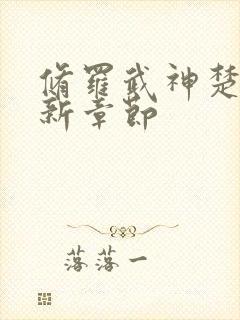 脩羅武神楚
新章節
落落一